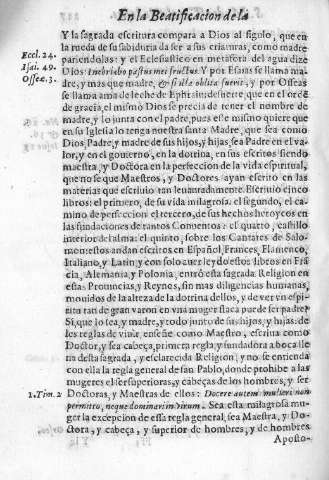 En la Beatificacion de la
Y la sagrada escritura compara a Dios al siglo, que en
Eccl. 24. la rueda de su sabiduria da ser a sus criaturas, como madre
Isai. 49. pariendolas: y el Eclesiastico en metafora del agua dize
Oseæ. 3. Dios: Inebriabo partus mei fructus. Y por Esaias se llama ma-
dre, y mas que madre, & si illa oblita fuerit, y por Oseas
se llama ama de leche de Ephrain de suerte, que en el orde
de gracia, el mismo Dios se precia de tener el nombre de
madre, y lo junta con el padre, pues este mismo quiere que
en su Iglesia lo tenga nuestra santa Madre, que sea como
Dios, Padre, y madre de sus hijos, y hijas, sea Padre en el va-
lor, y en el gouierno, en la dotrina, en sus escritos siendo
maestra, y Doctora en la perfeccion de la vida espiritual,
que no se que Maestros, y Doctores ayan escrito en las
materias que escriuio tan leuantadamente. Escriuio cinco
libros: el primero, de su vida milagrosa: el segundo, el ca-
mino de perfeccion el tercero, de sus hechos heroycos en
las fundaciones de tantos Conuentos: el quarto, castillo
interior del alma: el quinto, sobre los Cantares de Salo-
mon: estos andan escritos en Español, Frances, Flamenco,
Italiano, y Latin, y con solo auer leydo estos libros en Frã
cia, Alemania, y Polonia, entró esta sagrada Religion en
estas Prouincias, y Reynos, sin mas diligencias humanas,
mouidos de la alteza de la dotrina dellos, y de ver vn espi-
ritu tan de gran varon en vna muger flaca puede ser padre?
Si, que lo sea, y madre, y todo junto de sus hijos, y hijas: de
les reglas de viuir, enseñe como Maestro, escriua como
Doctor, y sea cabeça, primera regla, y fundadora a boca lle
na desta sagrada, y esclarecida Religion; y no se entienda
con ella la regla general de san Pablo, donde prohibe a las
mugeres el ser superioras, y cabeças de los hombres, y ser
1. Tim. 2 Doctoras, y Maestras de ellos: Docere autem mulieri non
permitto, neque dominari in virum. Sea esta milagrosa mu-
ger la excepcion de essa regla general, sea Maestra, y Do-
ctora, y cabeça, y superior de hombres, y de hombres
Aposto-